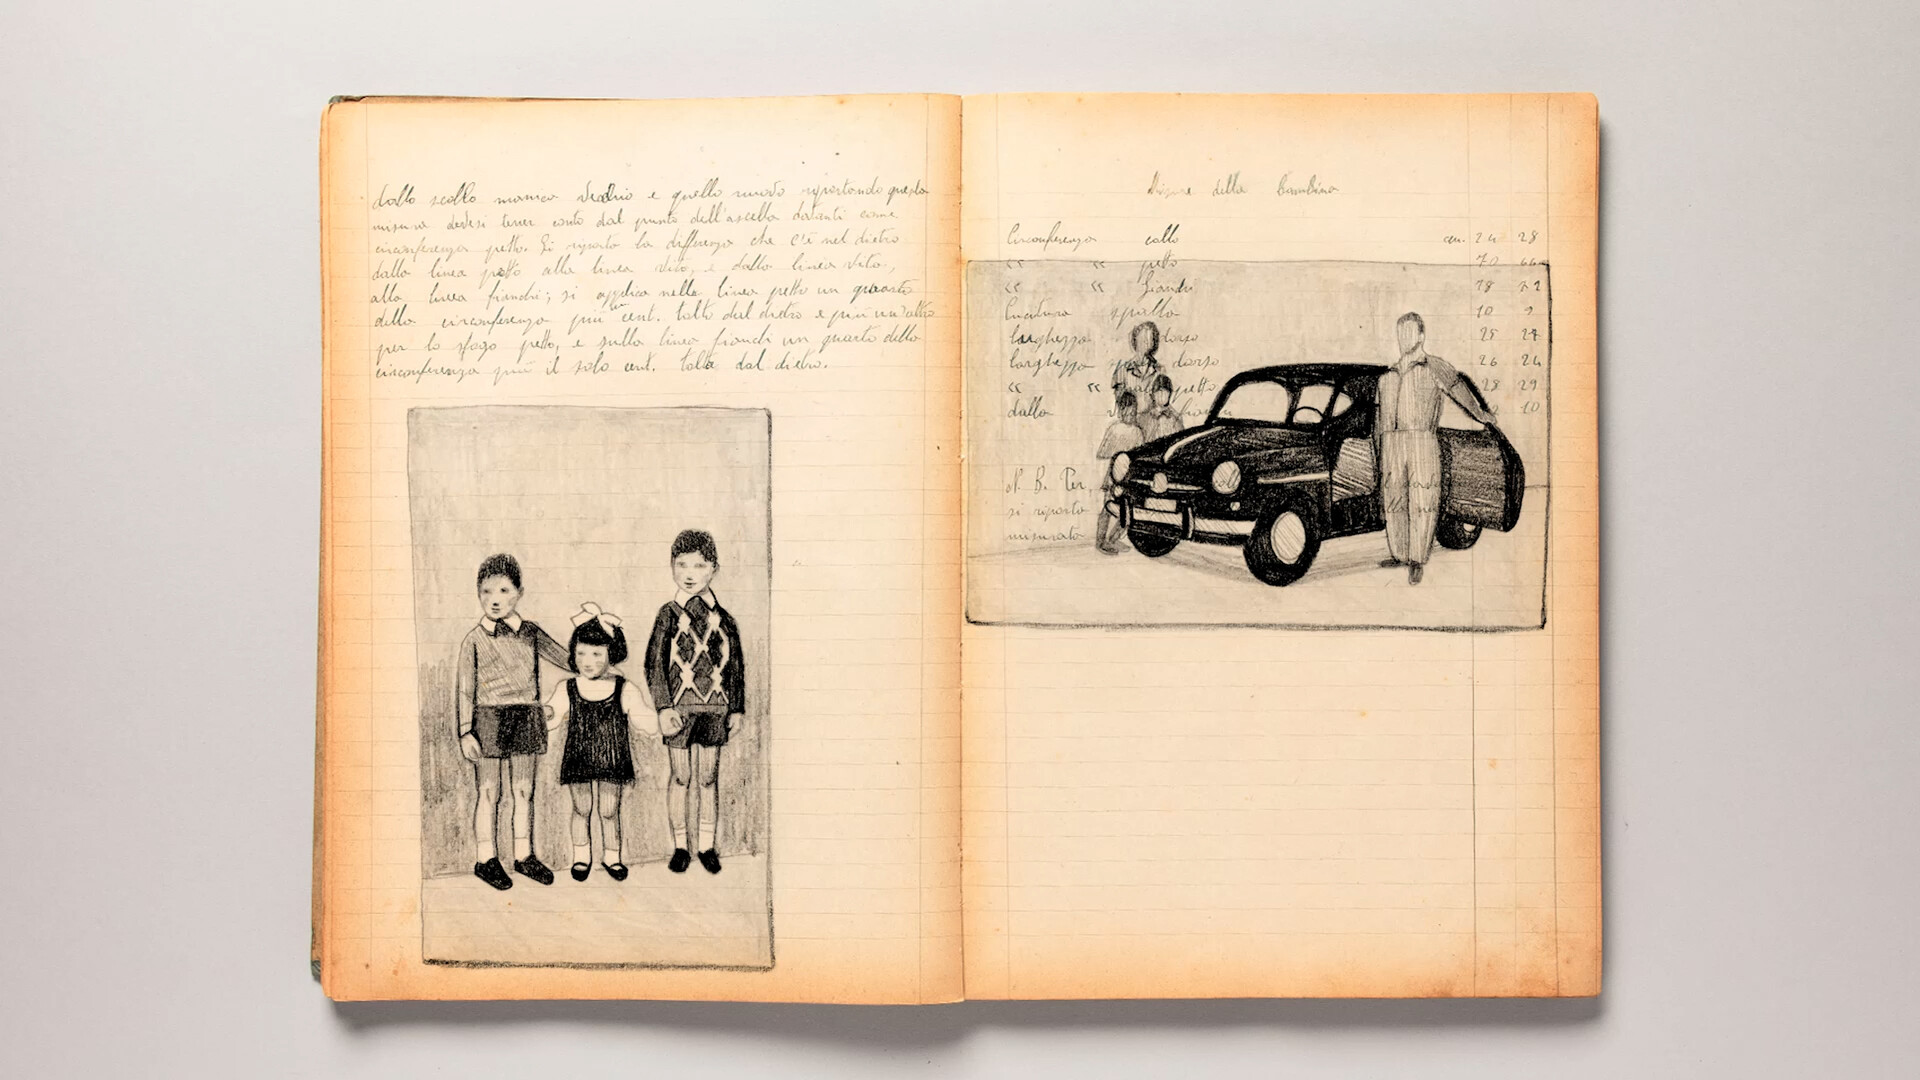 dallo scollo manica dietro e quello nuovo riportando questa
misura devesi tener conto dal punto dell'ascella davanti come
circonferenza petto. Si riporta la differenza che c'è nel dietro
dalla linea petto alla linea vita, e dalla linea vita,
alla linea fianchi; si applica nella linea petto un quarto
della circonferenza più un cent. tolto dal dietro e più un altro
per lo sfogo petto, e sulla linea fianchi un quarto della
circonferenza più il solo cent. tolto dal dietro.
Misure della bambina
Circonferenza collo cm. 24 28
" " petto 70 66
" " fianchi 78 72
spalla 10 9
larghezza 25 27
larghezza dorso 26 24
" " petto 28 29
dalla 10
N. B. Per
si riporta
misurato